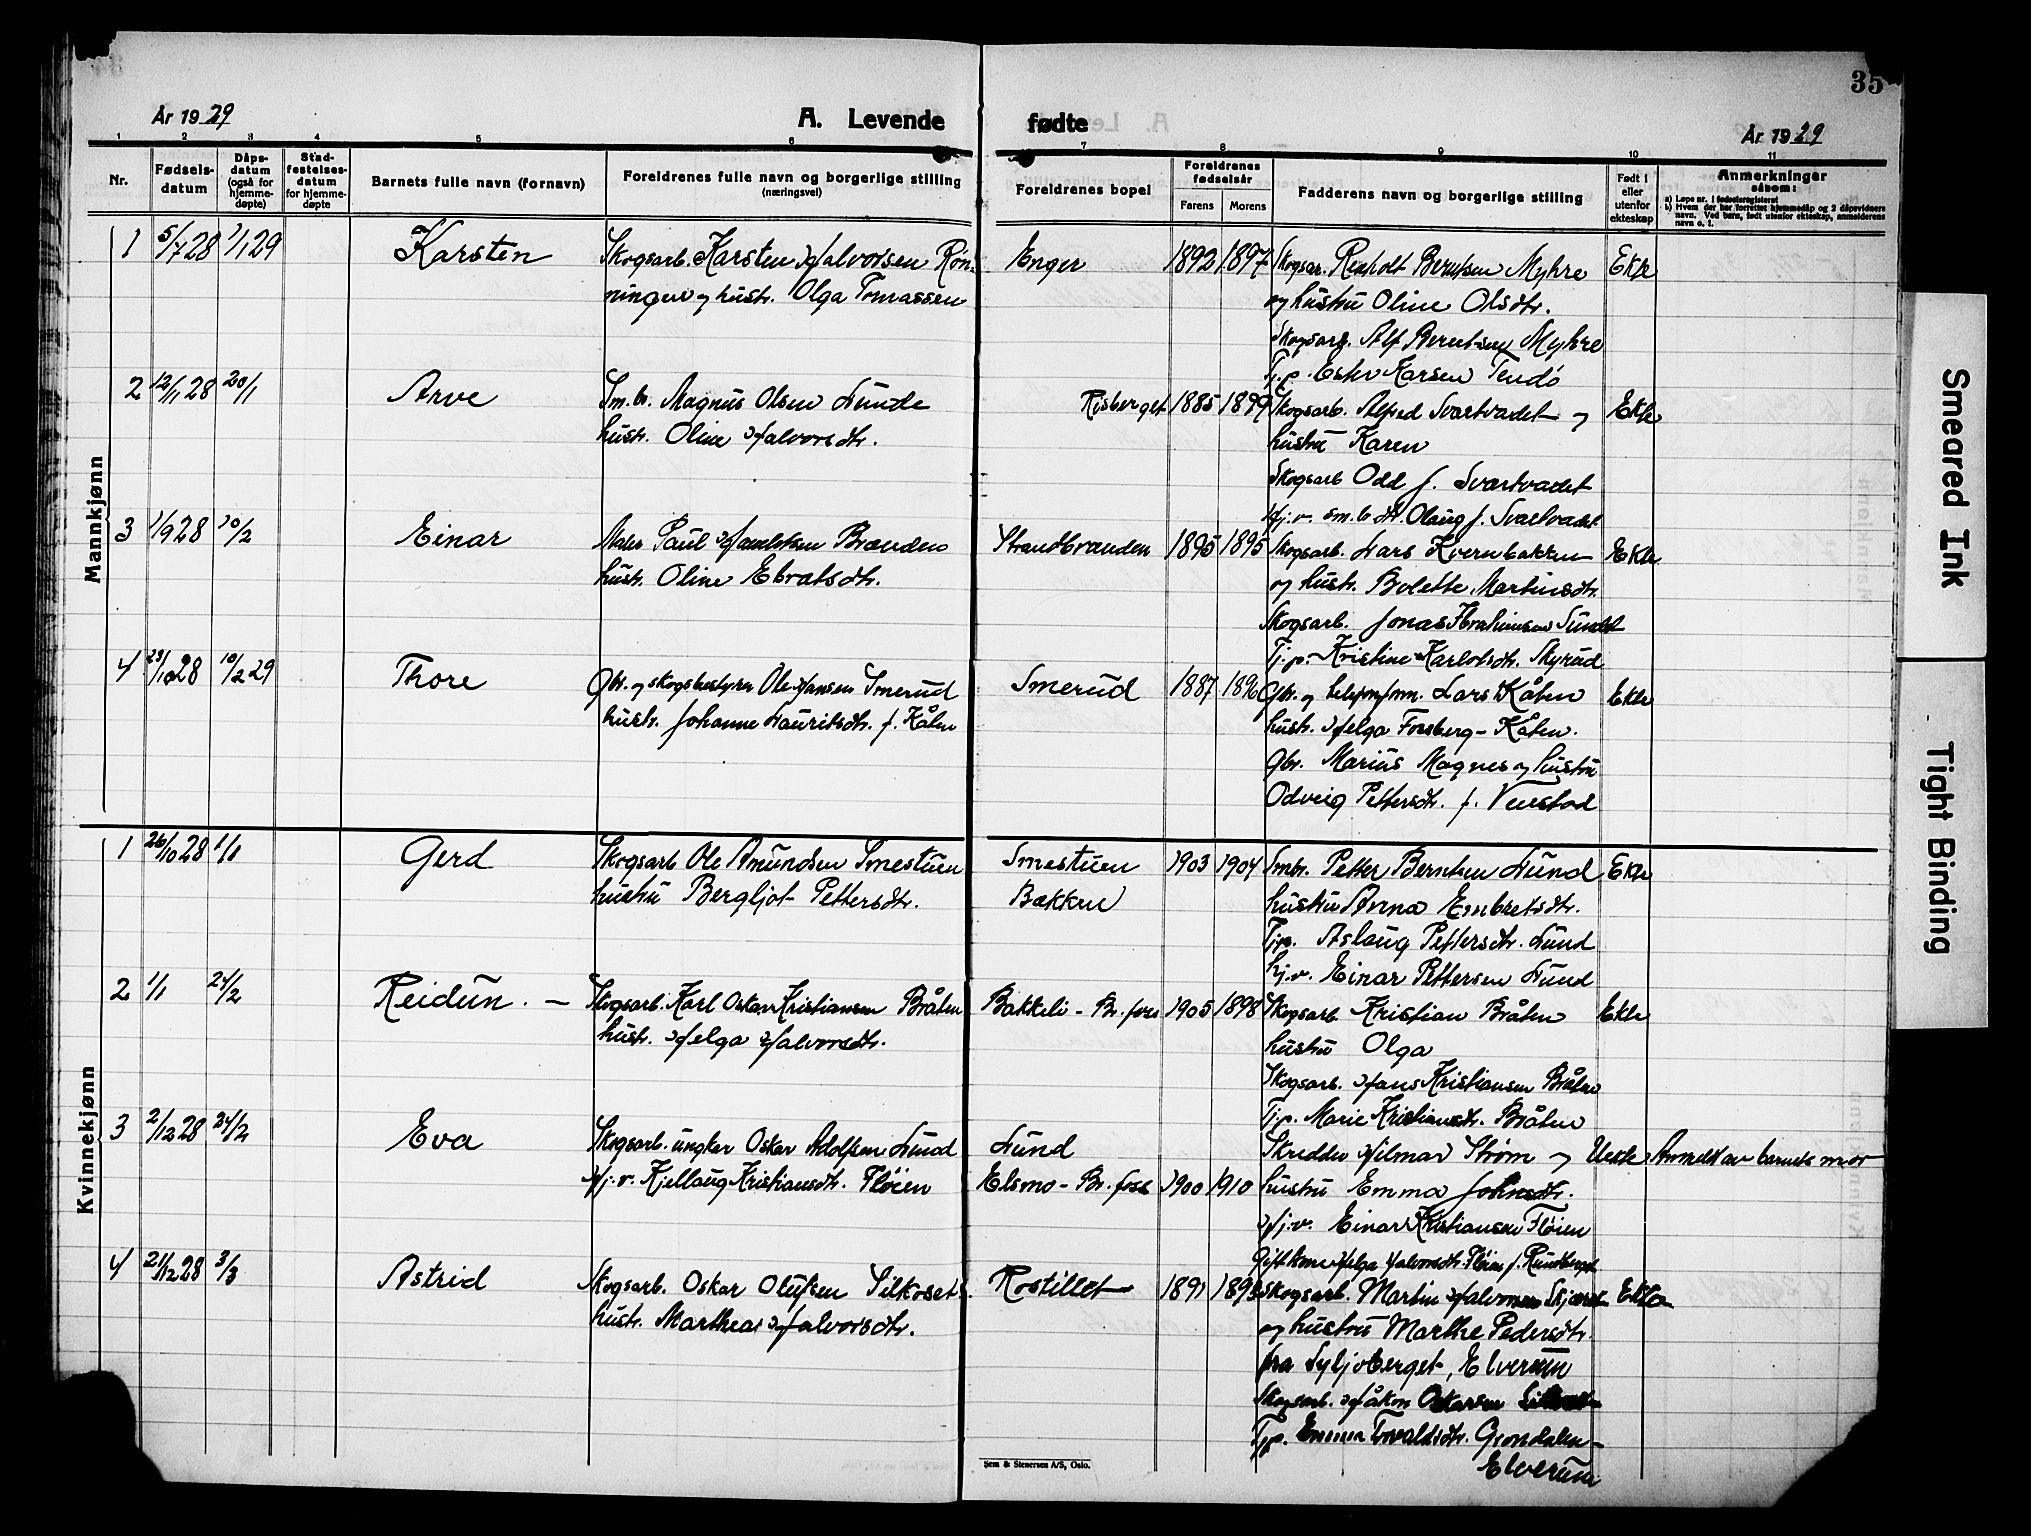 35
År 1929
A. Levende
fødte
År 1929
1 2 3 4 5 6 7 8 9 10 11
Nr.
Fødsels-
datum
Dåps-
datum
(også for
hjemme-
døpte)
Stad-
festelses-
datum
for hjemme-
døpte
Barnets fulle navn (fornavn)
Foreldrenes fulle navn og borgerlige stilling
(næringsvei)
Foreldrenes bopel
Foreldrenes
fødselsår
Farens
Morens
Fadderens navn og borgerlige stilling
Født i
eller
utenfor
ekteskap
Anmerkninger
såsom:
a) Løpe nr. i fødselsregisteret
b) Hvem der har forrettet hjemmedåp og 2 dåpsvidners
navn. Ved barn, født utenfor ekteskap, anmelderens
navn o. l.
Mannkjønn
1 5/7 28 1/1 29 Karsten Skogsarb. Karsten Halvorsen Røn- Enger 1892 1897 Skogsar. Renholt Berntsen Myhre Ekte
ningen og hustr. Olga Tomassen og hustru Oline Olsdtr.
Skogsarb. Alf Berntsen Myhre
Tj.p. Karsen
2 12/1 28 20/1 Arve Sm.br. Magnus Olsen Lunde Risberget 1885 1899 Skogsarb. Alfred Svartvadet og Ekte
hustr. Oline Halvorsdtr. hustru Karen
Skogsarb Odd f. Svartvadet
Hj.v. sm.b dtr. Olaug f. Svartvadet
3 1/9 28 10/2 Einar Maler Paul Brænden Strandbrænden 1895 1895 Skogsarb. Lars Kvernbakken Ekte
hustr. Oline Ebratsdtr. og hustr. Bolette Martinsdtr.
Skogsarb. Jonas Sundet
Tj.p. Kristine Karlotsdtr. Myrud
4 23/10 28 10/2 29 Thore Gbr. og skogbestyrer Ole Hansen Smerud Smerud 1887 1896 Gbr. og telefonform. Lars Kåten Ekte
hustr. Johanne Lauritsdtr. f. Kåten hustr. Helga Forsberg - Kåten.
Gbr. Marius Magnes og hustru
Odveig Pettersdtr. f. Venstad
Kvinnekjønn
1 26/10 28 1/1 Gerd Skogsarb Ole Amundsen Smestuen Smestuen 1903 1904 Smbr. Petter Berntsen Lund Ekte
hustru Bergljot Pettersdtr. Bakken hustru Anna Embretsdtr.
Tj.p. Aslaug Pettersdtr. Lund
hj.v. Einar Pettersen Lund
2 1/1 24/2 Reidun. - Skogsarb. Karl Oskar Kristiansen Bråten Bakkeli - Br.foss 1905 1898 Skogsarb. Kristian Bråten Ekte
hustr. Helga Halvorsdtr. hustru Olga
Skogsarb. Hans Kristiansen Bråten
Tj.p. Marie Kristiansdtr. Bråten
3 2/12 28 24/2 Eva Skogsarb. ungkar Oskar Adolfsen Lund Lund Skredder Hilmar Strøm og Uekte Anmeldt av barnets mor
Hj.v. Kjellaug Kristiansdtr. Fløien Elsmo - Br.foss 1900 1910 hustru Emma Johnsdtr.
Hj.v. Einar Kristiansen Fløien
Gift kone Helga Halvorsdtr. Fløien f. Rundberget
4 21/12 28 3/3 Astrid Skogsarb. Oskar Olufsen Silkoset Rostillet 1891 1893 Skogsarb. Martin Halvorsen Ekte
hustr. Marthea Halvorsdtr. og hustru Marthe Pedersdtr.
fra Syljoberget, Elverum
Skogsarb. Håkon Oskarsen
Tj.p. Emma Torvaldsdtr. Grøndalen -
Elverum
Sem & Stenersen A/S, Oslo.
Smeared Ink
Tight Binding